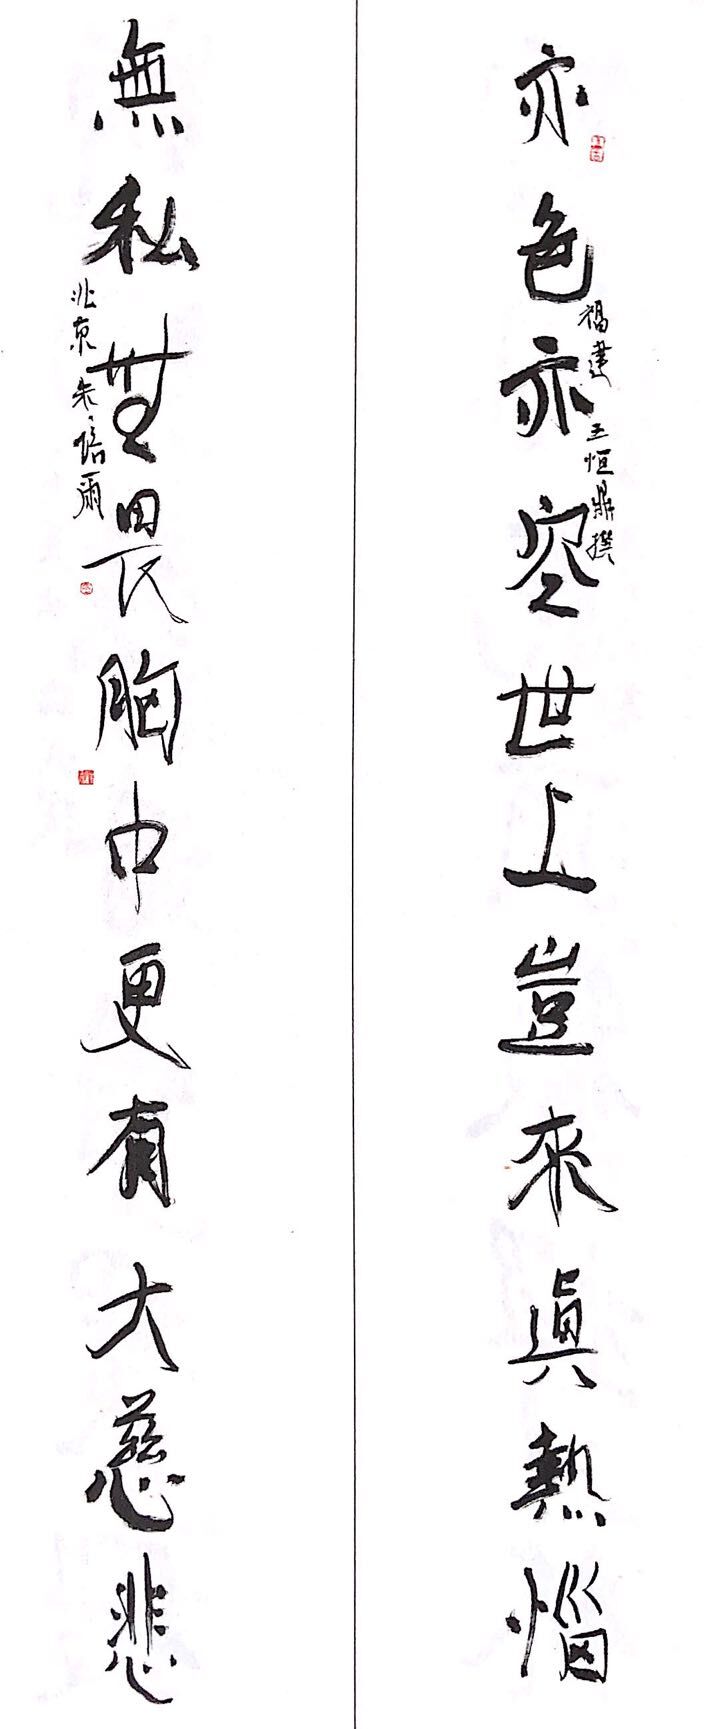 亦色亦空世上豈來真熱惱
福建王恒鼎撰
無私無畏胸中更有大慈悲
北京朱培爾